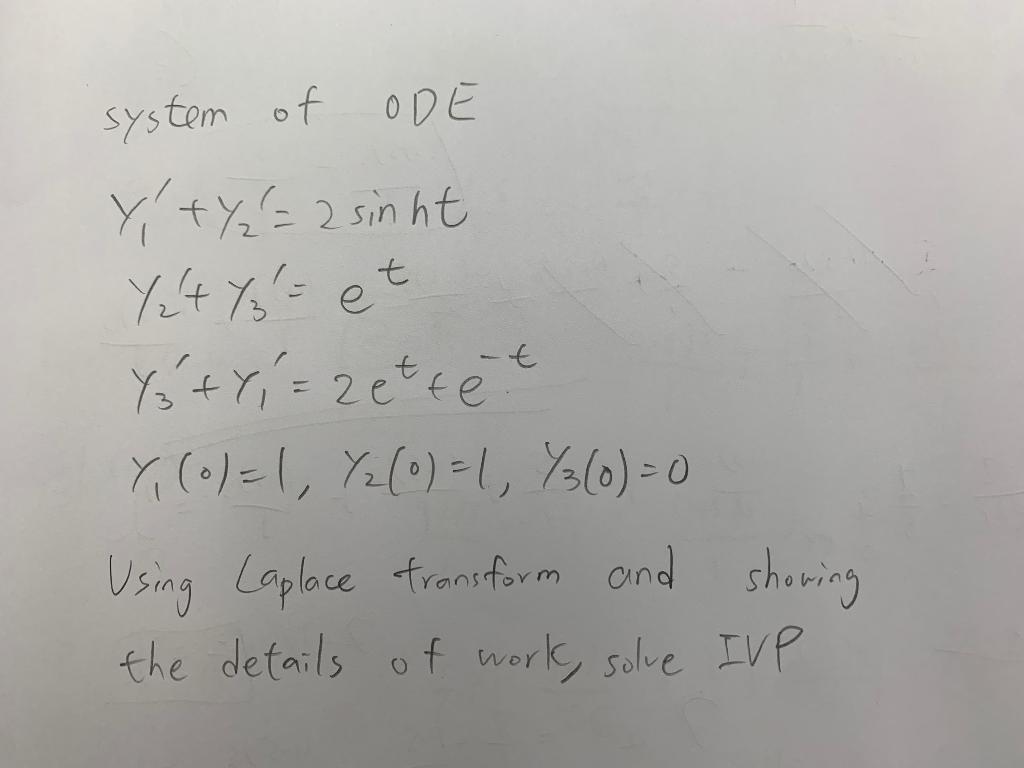 system of ODE
Y₁′ + Y₂′ = 2 sinht
Y₂′ + Y₃′ = eᵗ
Y₃′ + Y₁′ = 2eᵗ + e⁻ᵗ
Y₁(0)=1, Y₂(0)=1, Y₃(0)=0
Using Laplace transform and showing
the details of work, solve IVP